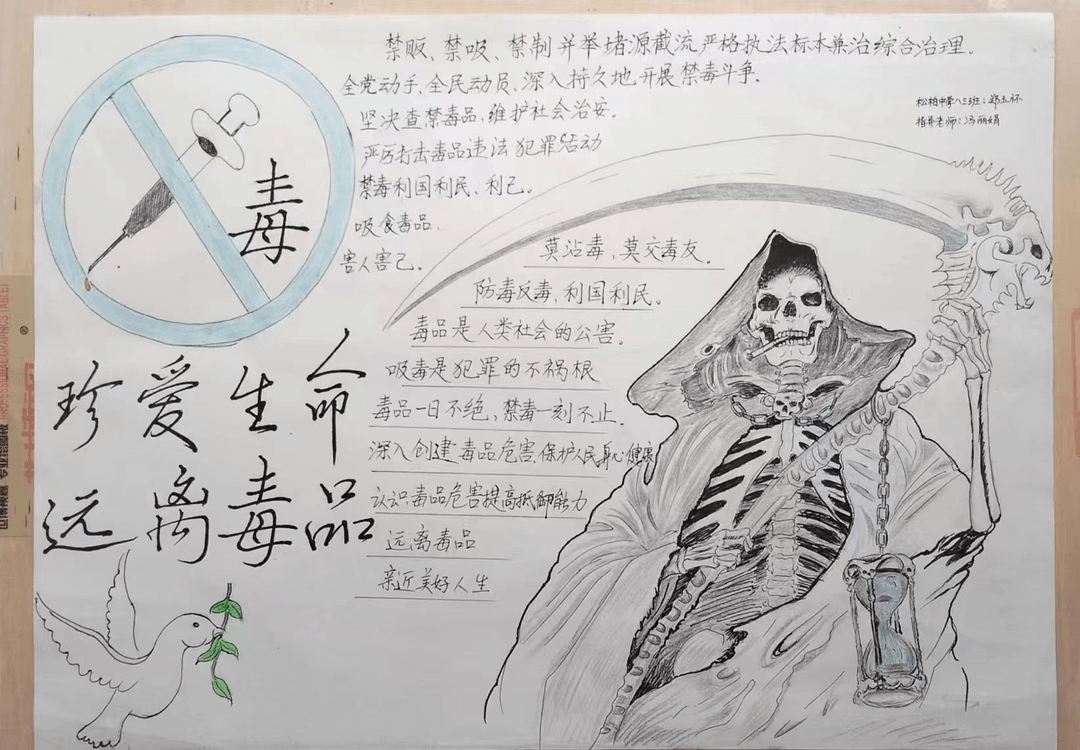 禁贩、禁吸、禁制并举堵源截流严格执法标本兼治综合治理.
全党动手,全民动员,深入持久地开展禁毒斗争.
坚决查禁毒品,维护社会治安.
严厉打击毒品违法犯罪活动
禁毒利国利民、利己。
吸食毒品.
害人害己。
松柏中学八三班:郑玉怀
指导老师:冯丽娟
毒
莫沾毒,莫交毒友.
防毒反毒,利国利民。
毒品是人类社会的公害.
吸毒是犯罪的不祸根
毒品一日不绝,禁毒一刻不止.
深入创建毒品危害,保护人民身心健康
认识毒品危害提高抵御能力
远离毒品
亲近美好人生
珍爱生命
远离毒品